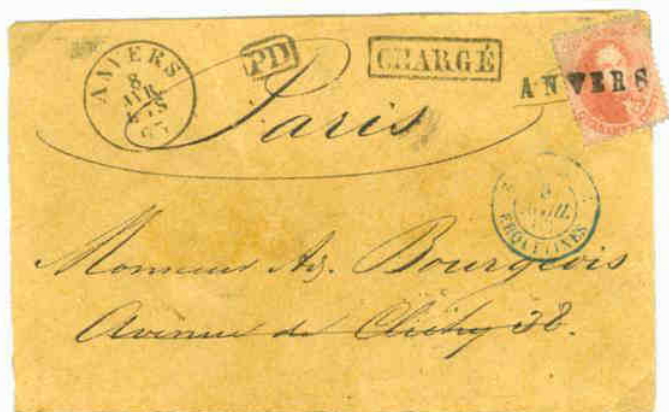 ANVERS
8
AVR
PD
CHARGÉ
ANVERS
Paris
ERQUELINES
Monsieur Bourgeois
Avenue de Clichy 38.